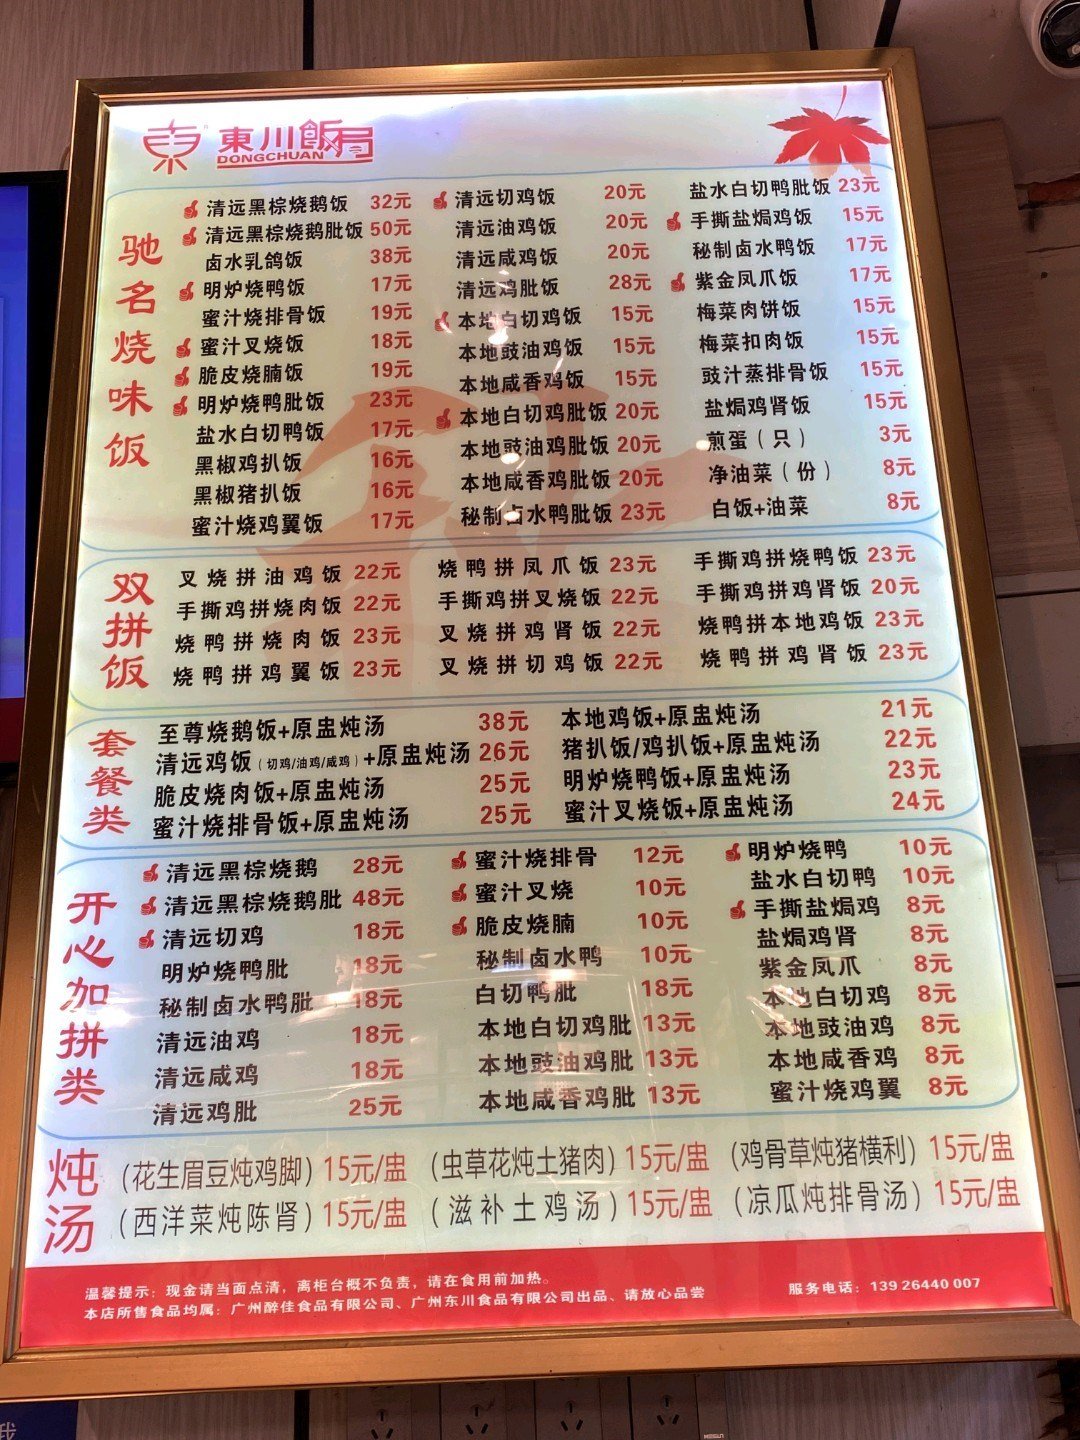 東川飯局
DONGCHUAN
驰名烧味饭
清远黑棕烧鹅饭 32元
清远黑棕烧鹅肶饭 50元
卤水乳鸽饭 38元
明炉烧鸭饭 17元
蜜汁烧排骨饭 19元
蜜汁叉烧饭 18元
脆皮烧腩饭 19元
明炉烧鸭肶饭 23元
盐水白切鸭饭 17元
黑椒鸡扒饭 16元
黑椒猪扒饭 16元
蜜汁烧鸡翼饭 17元
清远切鸡饭 20元
清远油鸡饭 20元
清远咸鸡饭 20元
清远鸡肶饭 28元
本地白切鸡饭 15元
本地豉油鸡饭 15元
本地咸香鸡饭 15元
本地白切鸡肶饭 20元
本地豉油鸡肶饭 20元
本地咸香鸡肶饭 20元
秘制卤水鸭肶饭 23元
盐水白切鸭肶饭 23元
手撕盐焗鸡饭 15元
秘制卤水鸭饭 17元
紫金凤爪饭 17元
梅菜肉饼饭 15元
梅菜扣肉饭 15元
豉汁蒸排骨饭 15元
盐焗鸡肾饭 15元
煎蛋（只） 3元
净油菜（份） 8元
白饭+油菜 8元
双拼饭
叉烧拼油鸡饭 22元
手撕鸡拼烧肉饭 22元
烧鸭拼烧肉饭 23元
烧鸭拼鸡翼饭 23元
烧鸭拼凤爪饭 23元
手撕鸡拼叉烧饭 22元
叉烧拼鸡肾饭 22元
叉烧拼切鸡饭 22元
手撕鸡拼烧鸭饭 23元
手撕鸡拼鸡肾饭 20元
烧鸭拼本地鸡饭 23元
烧鸭拼鸡肾饭 23元
套餐类
至尊烧鹅饭+原盅炖汤 38元
清远鸡饭（切鸡/油鸡/咸鸡）+原盅炖汤 26元
脆皮烧肉饭+原盅炖汤 25元
蜜汁烧排骨饭+原盅炖汤 25元
本地鸡饭+原盅炖汤 21元
猪扒饭/鸡扒饭+原盅炖汤 22元
明炉烧鸭饭+原盅炖汤 23元
蜜汁叉烧饭+原盅炖汤 24元
开心加拼类
清远黑棕烧鹅 28元
清远黑棕烧鹅肶 48元
清远切鸡 18元
明炉烧鸭肶 18元
秘制卤水鸭肶 18元
清远油鸡 18元
清远咸鸡 18元
清远鸡肶 25元
蜜汁烧排骨 12元
蜜汁叉烧 10元
脆皮烧腩 10元
秘制卤水鸭 10元
白切鸭肶 18元
本地白切鸡肶 13元
本地豉油鸡肶 13元
本地咸香鸡肶 13元
明炉烧鸭 10元
盐水白切鸭 10元
手撕盐焗鸡 8元
盐焗鸡肾 8元
紫金凤爪 8元
本地白切鸡 8元
本地豉油鸡 8元
本地咸香鸡 8元
蜜汁烧鸡翼 8元
炖汤
（花生眉豆炖鸡脚）15元/盅
（虫草花炖土猪肉）15元/盅
（鸡骨草炖猪横利）15元/盅
（西洋菜炖陈肾）15元/盅
（滋补土鸡汤）15元/盅
（凉瓜炖排骨汤）15元/盅
温馨提示：现金请当面点清，离柜台概不负责，请在食用前加热。
本店所售食品均属：广州醉佳食品有限公司、广州东川食品有限公司出品、请放心品尝
服务电话：139 26440 007